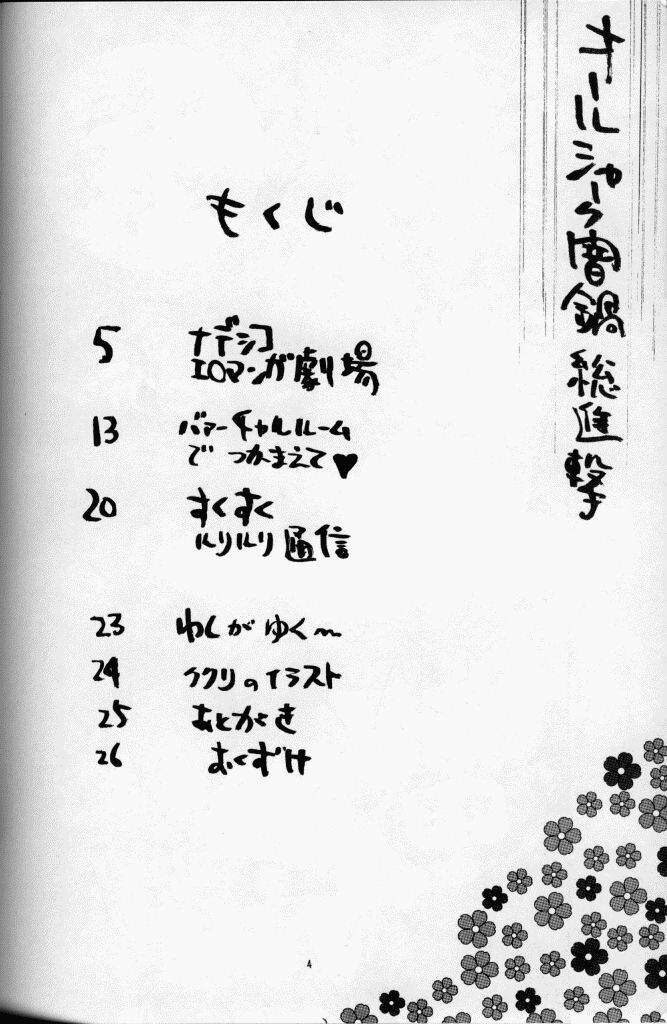 オールシャーク闇鍋 総進撃
もくじ
5 ナデシコ
エロマンガ劇場
13 バァーチャルルーム
で つかまえて♥
20 すくすく
ルリルリ通信
23 わしがゆく〜
24 ククリのイラスト
25 あとがき
26 おくずけ
4